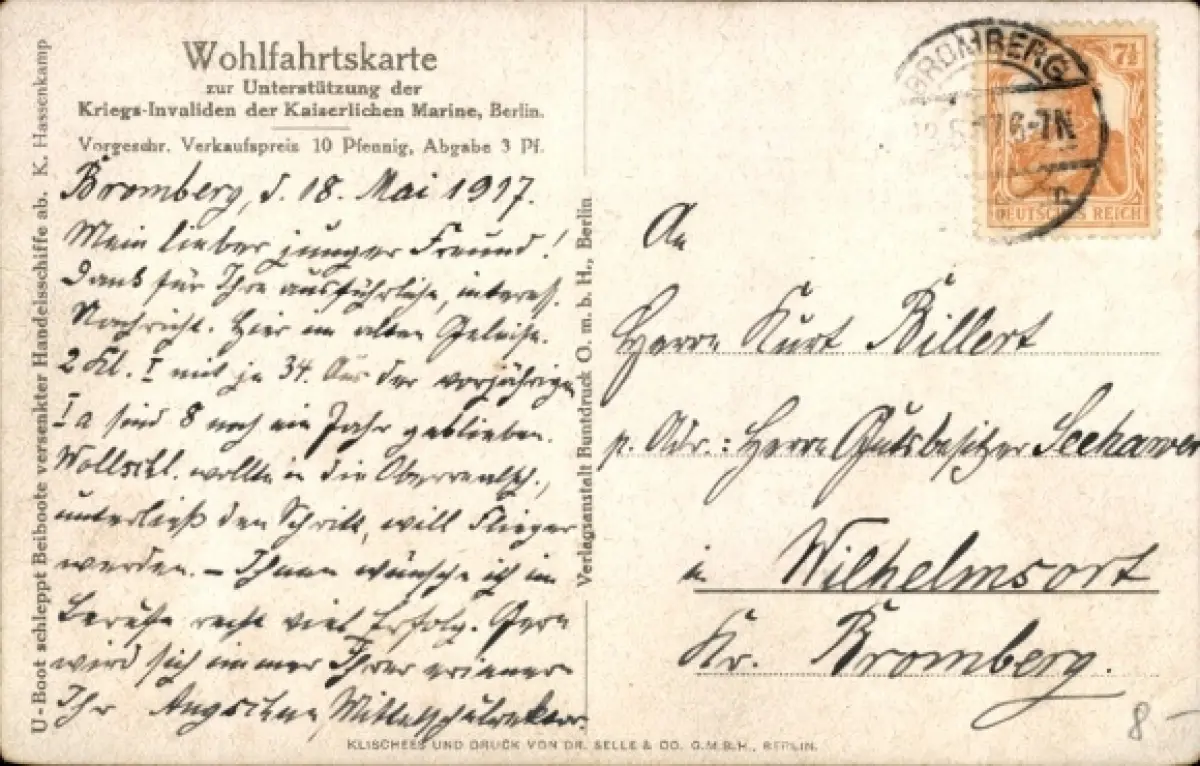 Wohlfahrtskarte
zur Unterstützung der
Kriegs-Invaliden der Kaiserlichen Marine, Berlin.
Vorgeschr. Verkaufspreis 10 Pfennig, Abgabe 3 Pf.
Bromberg, d. 18. Mai 1917.
Mein lieber junger Freund!
Dank für Ihre ausführliche, interess.
Nachricht. Hier im alten Geleise.
2 Kl. I mit je 34. Aus der vorjährigen
I a sind 8 noch ein Jahr geblieben.
wollte in die
unterließ den Schritt, will Flieger
werden. – Ihnen wünsche ich im
Berufe recht viel Erfolg. Gern
wird sich immer Ihrer erinnern
Ihr Mittelschulrektor.
U-Boot schleppt Beiboote versenkter Handelsschiffe ab. K. Hassenkamp
Verlagsanstalt Buntdruck G. m. b. H., Berlin
BROMBERG
17 6-7N
7½
DEUTSCHES REICH
An
Herrn Kurt Billert
p. Adr.: Herrn Gutsbesitzer Seehawer
in Wilhelmsort
Kr. Bromberg.
8
KLISCHEES UND DRUCK VON DR. SELLE & CO. G.M.B.H., BERLIN.